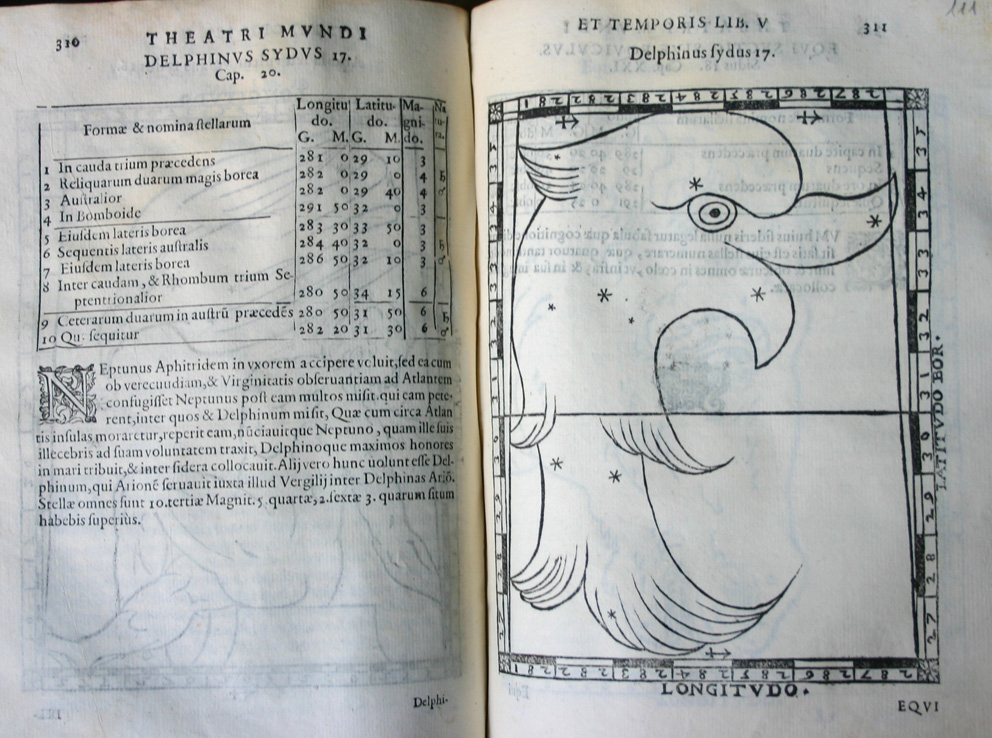 310
THEATRI MVNDI
DELPHINVS SYDVS 17.
Cap. 20.
Formæ & nomina stellarum
Longitu Latitu- Ma-
do. do. gni-
G. M. G. M. do.
1 In cauda trium præcedens 281 0 29 10 3
2 Reliquarum duarum magis borea 282 0 29 0 4 ♄
3 Australior 282 0 29 40 4 ♂
4 In Bomboide 291 50 32 0 3
5 Eiusdem lateris borea 283 30 33 50 3
6 Sequentis lateris australis 284 40 32 0 3 ♄
7 Eiusdem lateris borea 286 50 32 10 3 ♂
8 Inter caudam, & Rhombum trium Se-
ptentrionalior 280 50 34 15 6
9 Ceterarum duarum in austrũ præcedẽs 280 50 31 50 6 ♄
10 Qu. sequitur 282 20 31 30 6 ♂
NEptunus Aphitridem in vxorem accipere voluit, sed ea cum
ob verecuudiam, & Virginitatis obseruantiam ad Atlantem
confugisset Neptunus post eam multos misit. qui eam pete-
rent, inter quos & Delphinum misit, Quæ cum circa Atlan
tis insulas moraretur, reperit eam, nũciauitque Neptuno, quam ille suis
illecebris ad suam voluntatem traxit, Delphinoque maximos honores
in mari tribuit, & inter sidera collocauit. Alij vero hunc uolunt esse Del-
phinum, qui Arionẽ seruauit iuxta illud Vergilij inter Delphinas Ariõ.
Stellæ omnes sunt 10. tertiæ Magnit. 5. quartæ, 2. sextæ 3. quarum situm
habebis superius.
Delphi-
ET TEMPORIS LIB. V
311
111
Delphinus sydus 17.
281 282 283 284 285 286 287
35 34 33 32 31 30 29 28 27
35 34 33 32 31 30 29 28 27
LATITVDO BOR.
281 282 283 284 285 286 287
LONGITVDO.
EQVI